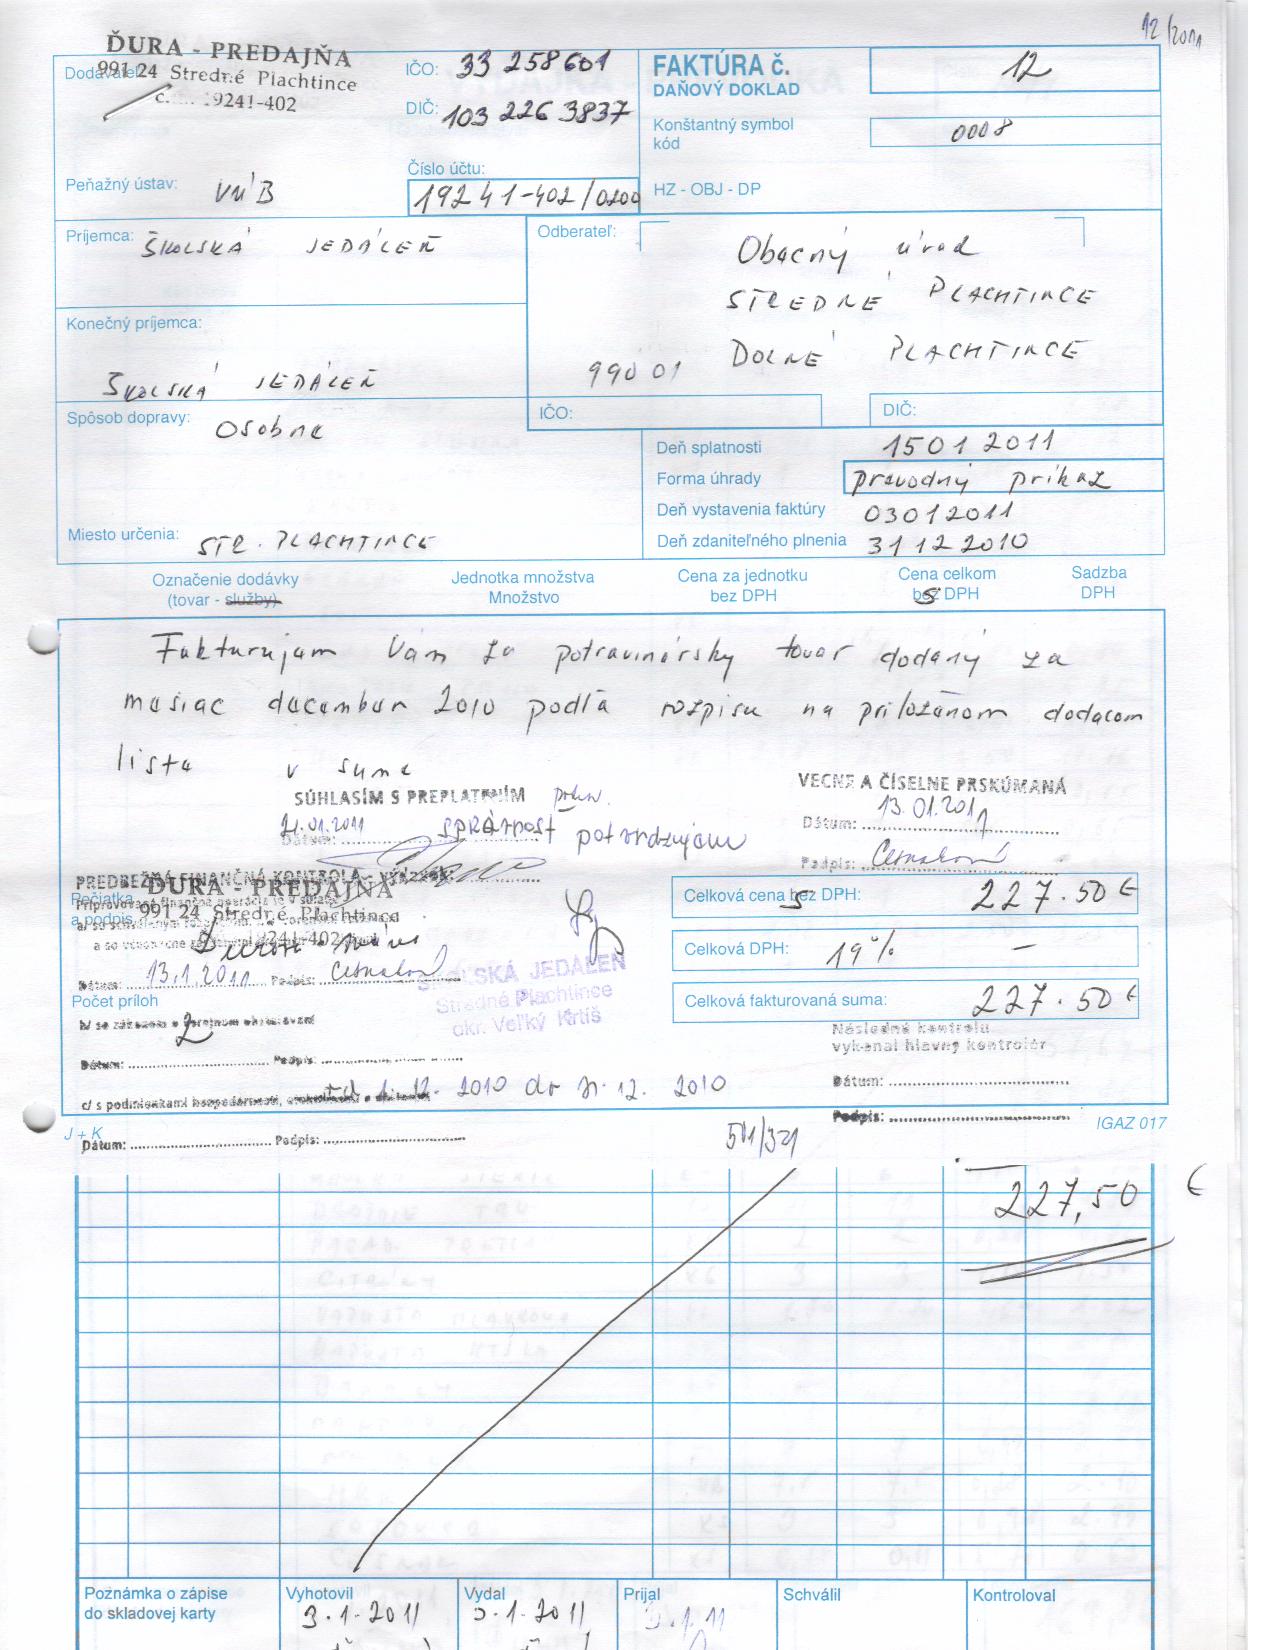 12/2011
ĎURA - PREDAJŇA
991 24 Stredné Plachtince
19241-402
Dodávateľ:
IČO: 33 258601
DIČ: 103 226 3837
FAKTÚRA č. 12
DAŇOVÝ DOKLAD
Konštantný symbol 0008
kód
Peňažný ústav: VÚB
Číslo účtu:
19241-402/0200
HZ - OBJ - DP
Príjemca: ŠKOLSKÁ JEDÁLEŇ
Odberateľ:
Obecný úrad
STREDNÉ PLACHTINCE
DOLNÉ PLACHTINCE
990 01
Konečný príjemca:
ŠKOLSKÁ JEDÁLEŇ
IČO:
DIČ:
Spôsob dopravy: Osobne
Deň splatnosti 15 01 2011
Forma úhrady prevodný príkaz
Deň vystavenia faktúry 03 01 2011
Deň zdaniteľného plnenia 31 12 2010
Miesto určenia: STR. PLACHTINCE
Označenie dodávky
(tovar - služby)
Jednotka množstva
Množstvo
Cena za jednotku
bez DPH
Cena celkom
s DPH
Sadzba
DPH
Fakturujem Vám za potravinársky tovar dodaný za
mesiac december 2010 podľa rozpisu na priloženom dodacom
liste v sume
SÚHLASÍM S PREPLATENÍM
21.01.2011
Dátum:
správnosť potvrdzujem
VECNE A ČÍSELNE PRSKÚMANÁ
Dátum: 13.01.2011
Podpis:
PREDBEŽNÁ FINANČNÁ KONTROLA
Pečiatka
a podpis
ĎURA - PREDAJŇA
991 24 Stredné Plachtince
9241-402
Dátum: 13.1.2011 Podpis:
ŠKOLSKÁ JEDÁLEŇ
Stredné Plachtince
okr. Veľký Krtíš
Celková cena s DPH: 227.50 €
Celková DPH: 19% —
Celková fakturovaná suma: 227.50 €
Počet príloh
2
b/ so zákonom o verejnom obstarávaní
Dátum: Podpis:
Následnú kontrolu
vykonal hlavný kontrolór
Dátum:
Podpis:
od 1.12. 2010 do 31.12. 2010
c/ s podmienkami hospodárnosti,
J + K
Dátum: Podpis:
IGAZ 017
511/321
227,50 €
Poznámka o zápise
do skladovej karty
Vyhotovil
3.1.2011
Vydal
3.1.2011
Prijal
3.1.11
Schválil
Kontroloval